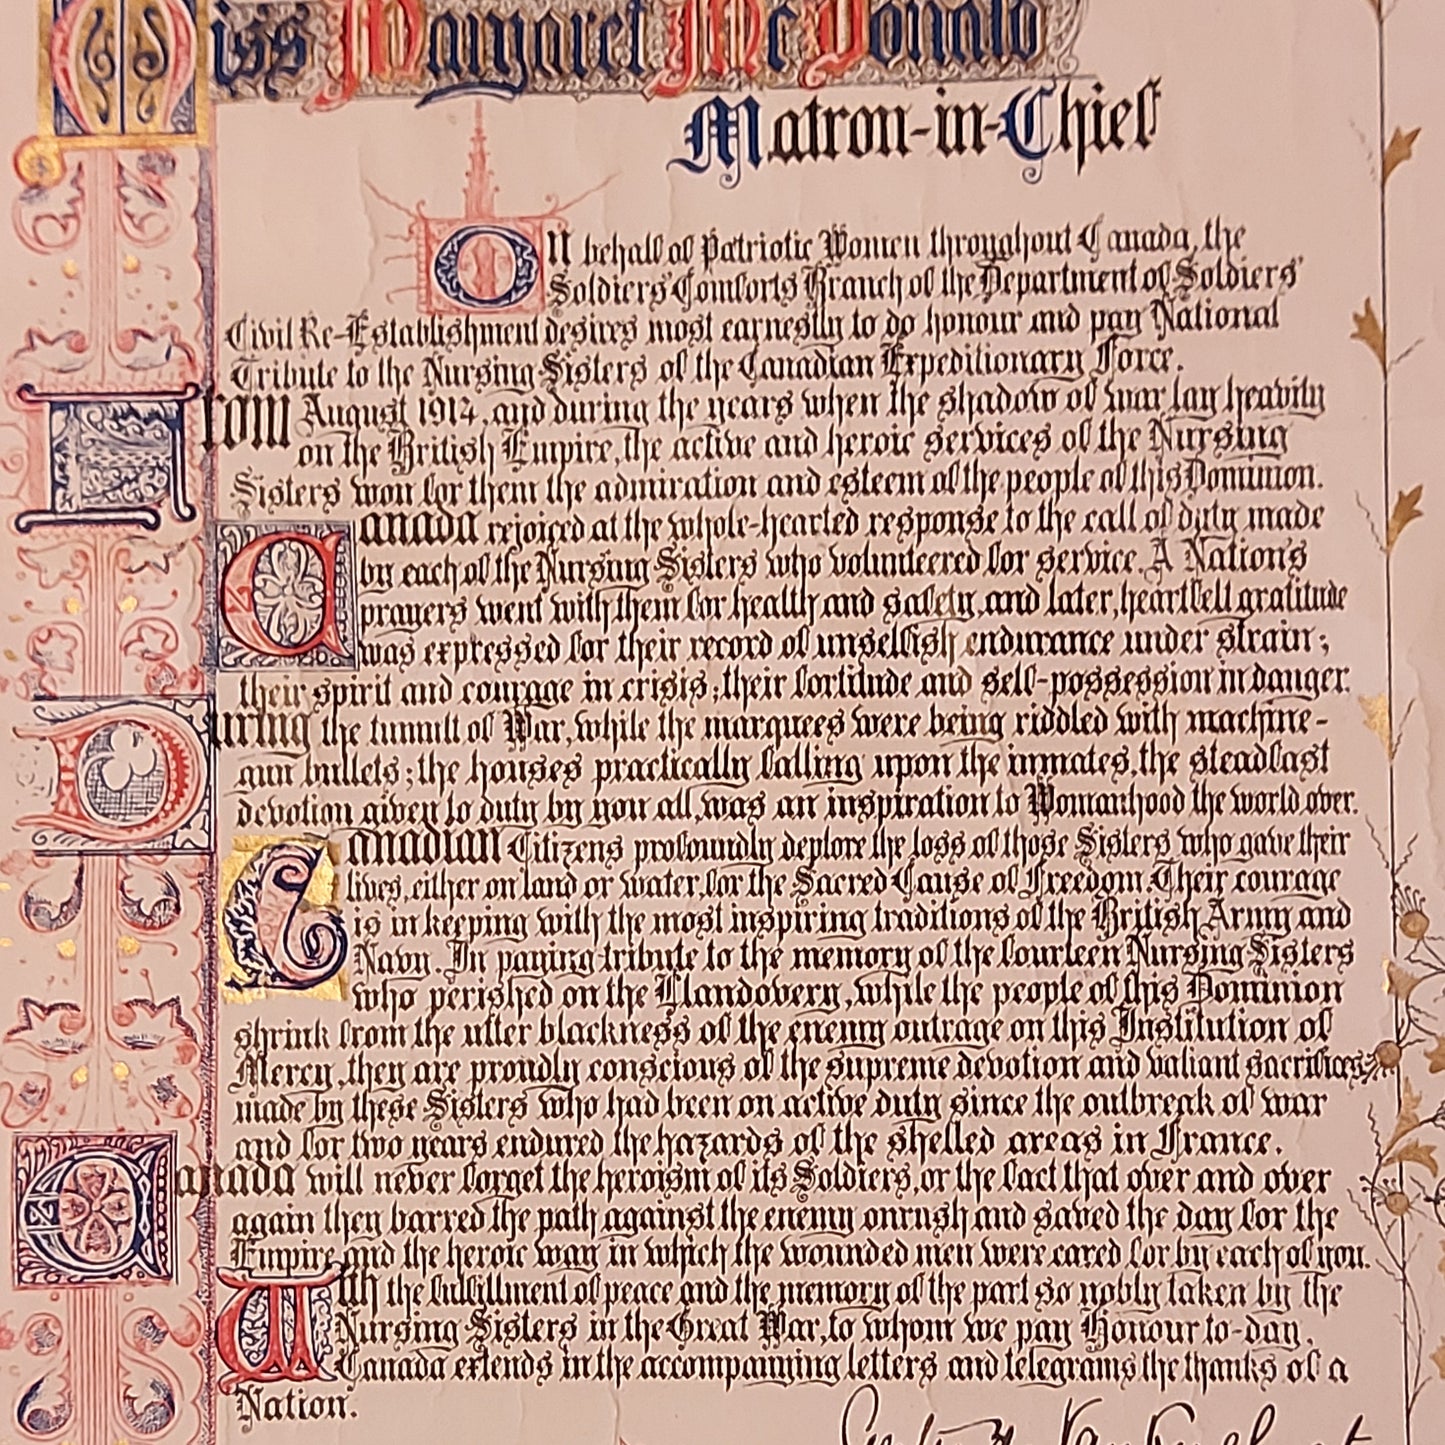 Miss Margaret McDonald
Matron-in-Chief
On behalf of Patriotic Women throughout Canada, the
Soldiers' Comforts Branch of the Department of Soldiers'
Civil Re-Establishment desires most earnestly to do honour and pay National
Tribute to the Nursing Sisters of the Canadian Expeditionary Force.
From August 1914, and during the years when the shadow of war lay heavily
on the British Empire, the active and heroic services of the Nursing
Sisters won for them the admiration and esteem of the people of this Dominion.
Canada rejoiced at the whole-hearted response to the call of duty made
by each of the Nursing Sisters who volunteered for service. A Nation's
prayers went with them for health and safety, and later, heartfelt gratitude
was expressed for their record of unselfish endurance under strain;
their spirit and courage in crisis; their fortitude and self-possession in danger.
During the tumult of War, while the marquees were being riddled with machine-
gun bullets; the houses practically falling upon the inmates, the steadfast
devotion given to duty by you all, was an inspiration to Womanhood the world over.
Canadian Citizens profoundly deplore the loss of those Sisters who gave their
lives, either on land or water, for the Sacred Cause of Freedom. Their courage
is in keeping with the most inspiring traditions of the British Army and
Navy. In paying tribute to the memory of the fourteen Nursing Sisters
who perished on the Llandovery, while the people of this Dominion
shrink from the utter blackness of the enemy outrage on this Institution of
Mercy, they are proudly conscious of the supreme devotion and valiant sacrifices
made by these Sisters who had been on active duty since the outbreak of war
and for two years endured the hazards of the shelled areas in France.
Canada will never forget the heroism of its Soldiers, or the fact that over and over
again they barred the path against the enemy onrush and saved the day for the
Empire, and the heroic way in which the wounded men were cared for by each of you.
With the fulfillment of peace and the memory of the part so nobly taken by the
Nursing Sisters in the Great War, to whom we pay Honour to-day,
Canada extends in the accompanying letters and telegrams the thanks of a
Nation.